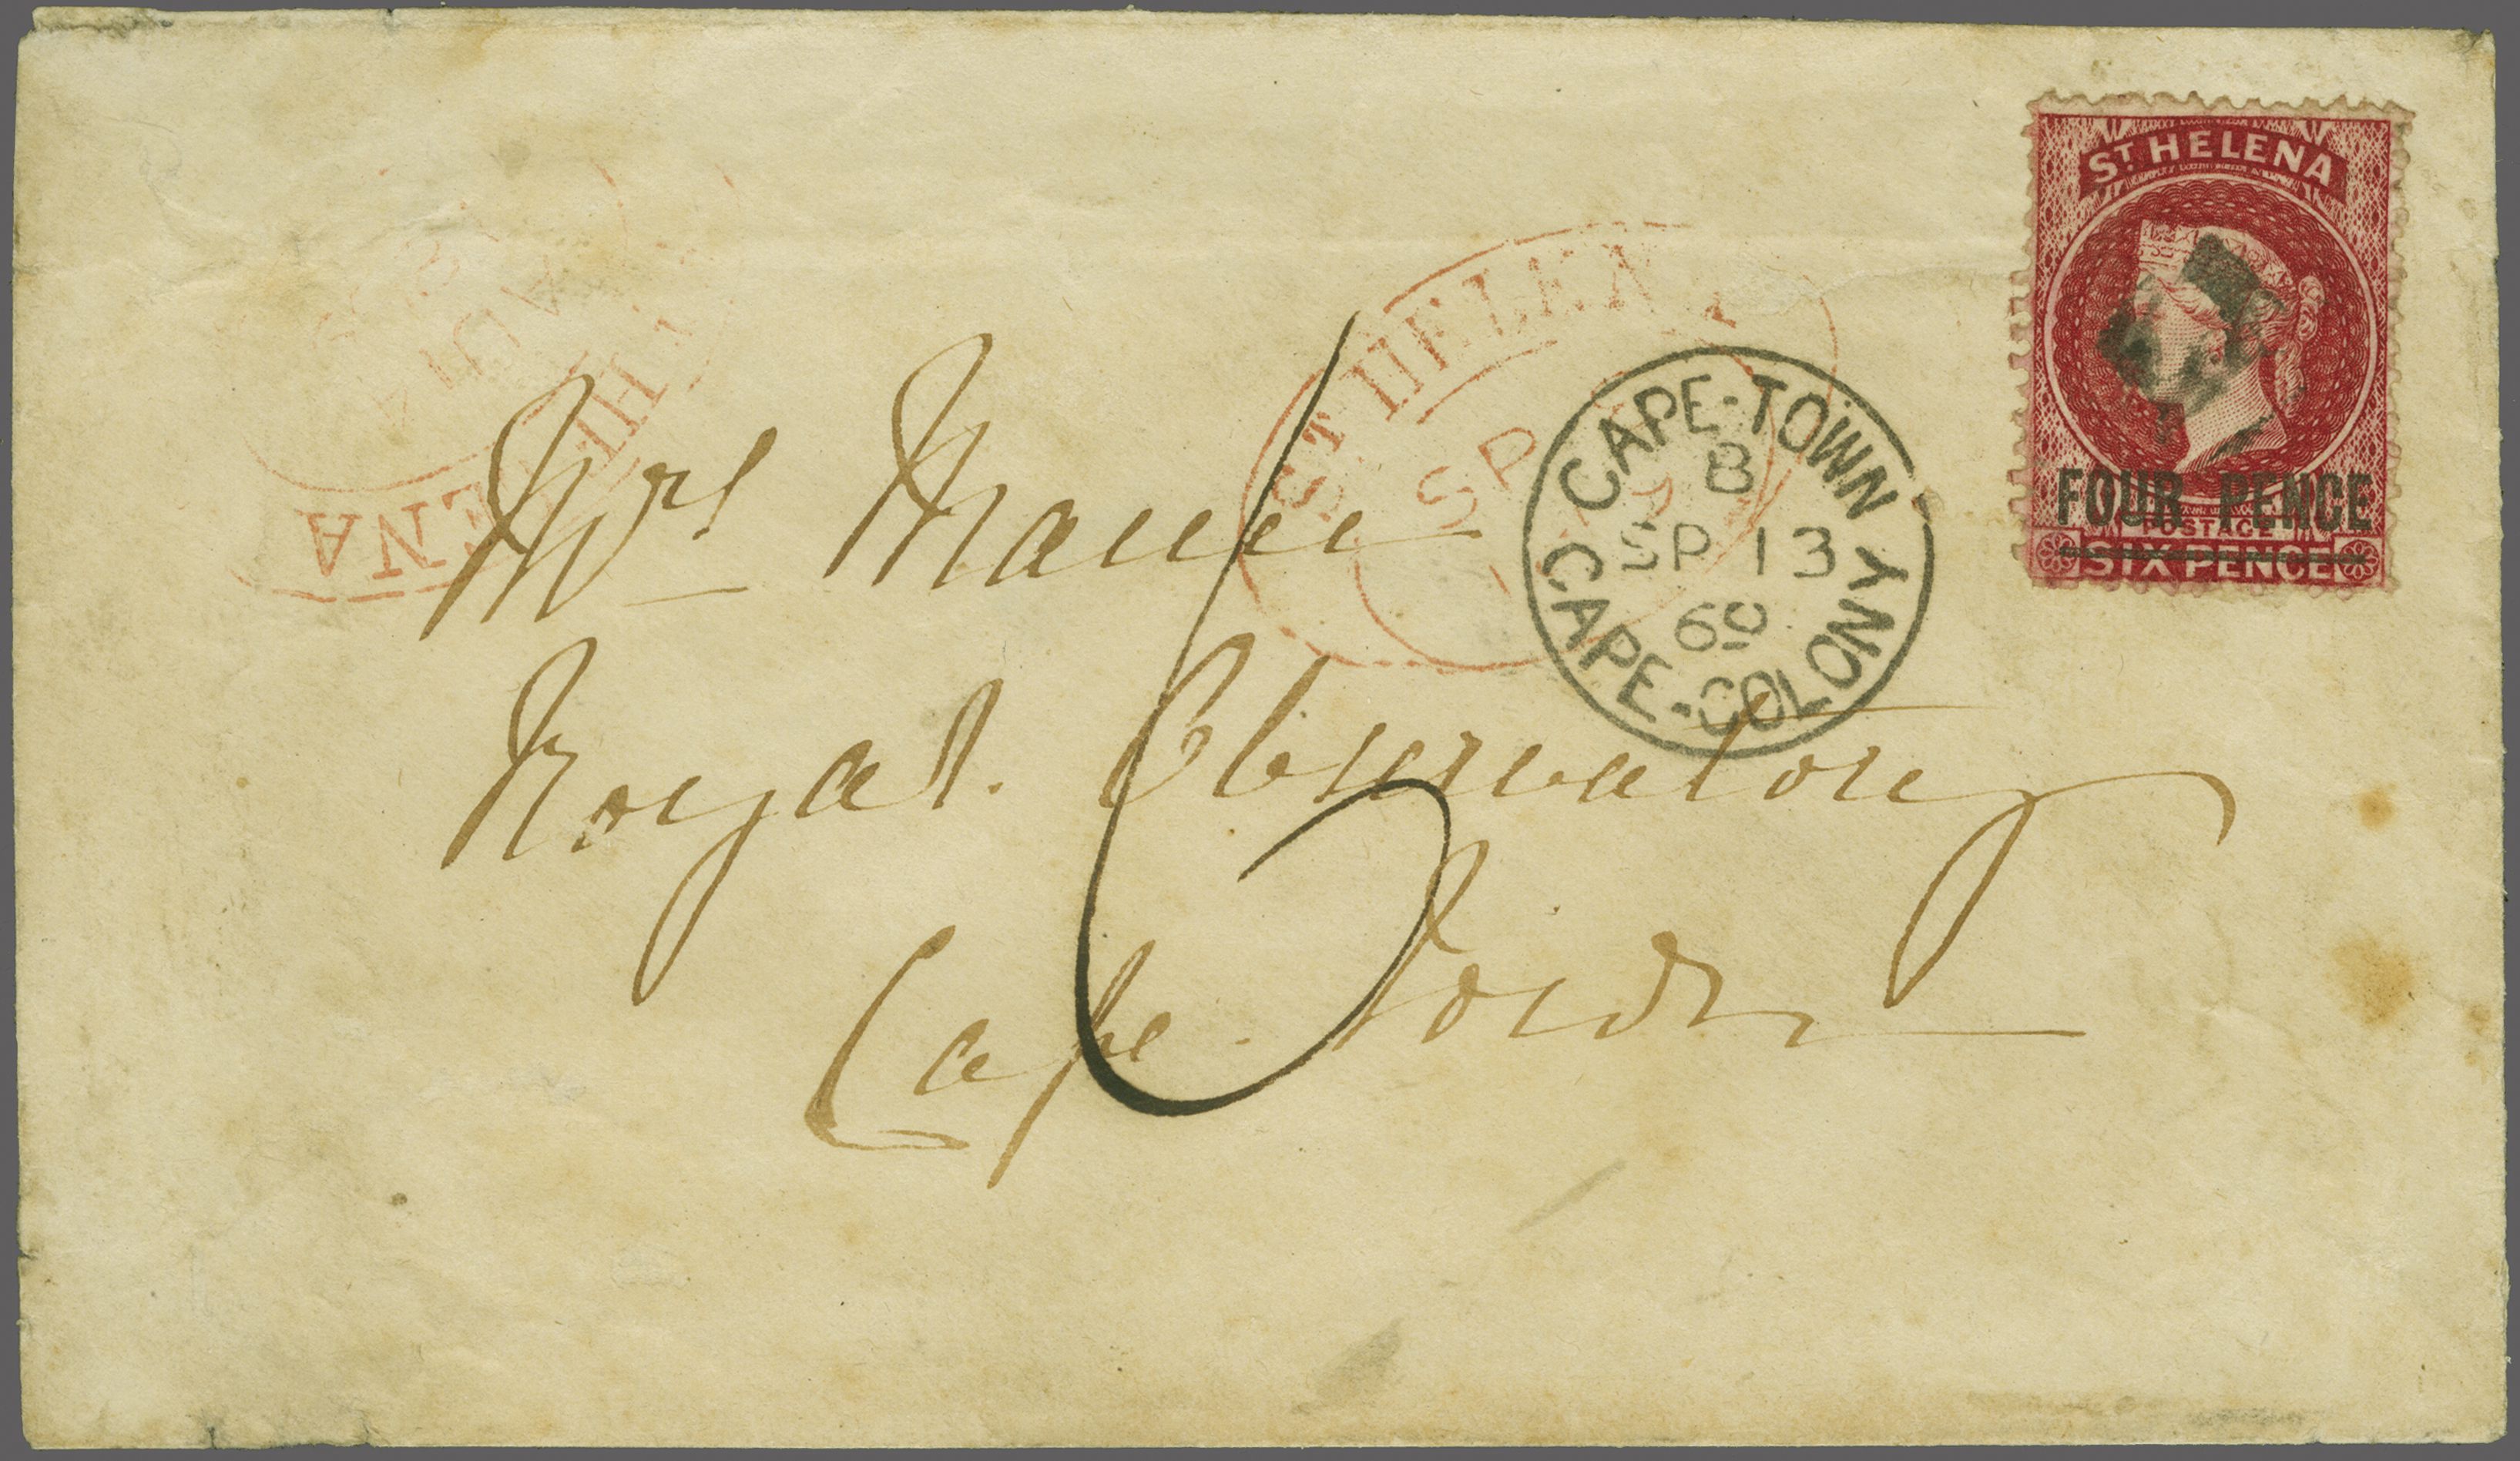 ST HELENA
FOUR PENCE
POSTAGE
SIX PENCE
ST HELENA
SP
CAPE-TOWN
B
SP 13
69
CAPE-COLONY
HELENA
Mrs Mann
Royal Observatory
Cape Town
6